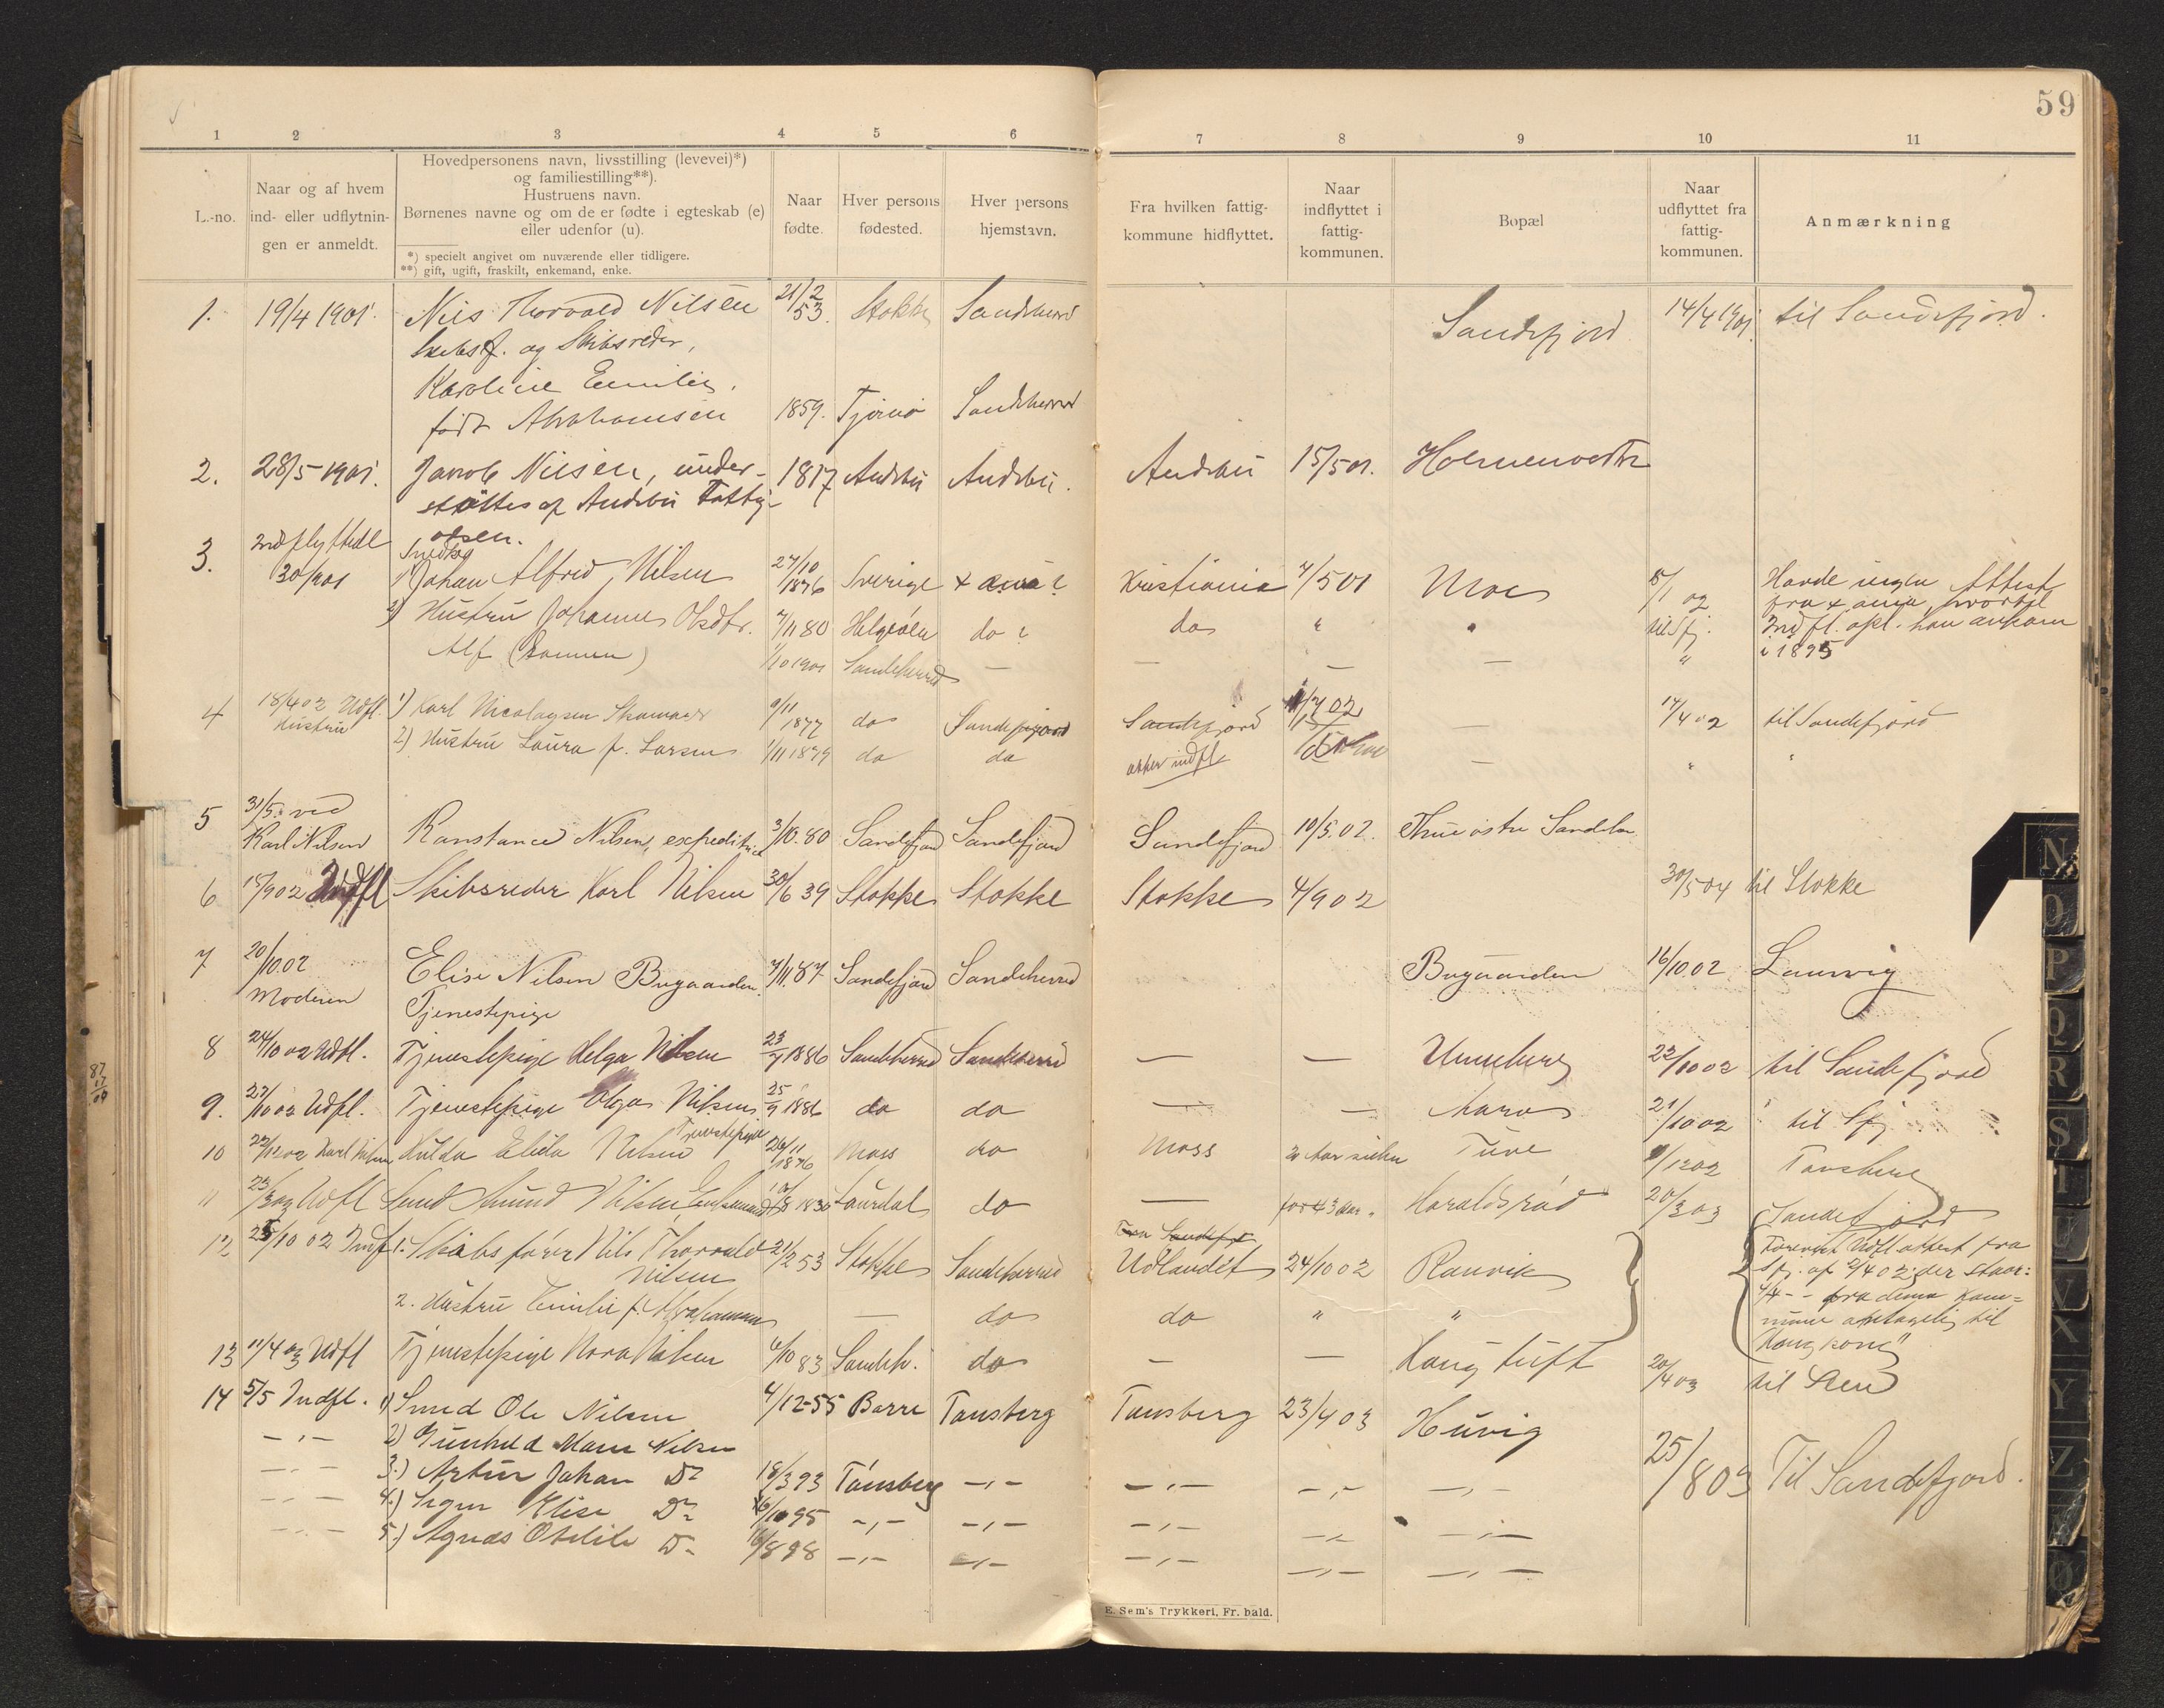 59
1 2 3 4 5 6 7 8 9 10 11
L.-no.
Naar og af hvem
ind- eller udflytnin-
gen er anmeldt.
Hovedpersonens navn, livsstilling (levevei)*)
og familiestilling**).
Hustruens navn.
Børnenes navne og om de er fødte i egteskab (e)
eller udenfor (u).
*) specielt angivet om nuværende eller tidligere.
**) gift, ugift, fraskilt, enkemand, enke.
Naar
fødte.
Hver persons
fødested.
Hver persons
hjemstavn.
Fra hvilken fattig-
kommune hidflyttet.
Naar
indflyttet i
fattig-
kommunen.
Bopæl
Naar
udflyttet fra
fattig-
kommunen.
Anmærkning
1. 19/4 1901. Nils Thorvald Nilsen 21/2 53. Stokke Sandeherred Sandefjord 14/4 1901. til Sandefjord.
Skibsf. og Skibsreder,
Karoline Emilie,
født Abrahamsen 1859. Tjømø Sandeherred
2. 28/5 1901. Jacob Nilsen, under- 1817 Andebu Andebu. Andebu 15/5 01.
støttes af Andebu Fattig-
3. Indflyttede
30/ 1901 1) Johan Alfred Nilsen 27/10 1876 Sverige Kristiania 4/5 01 Moe 8/1 02 Havde ingen Attest
2) Hustru Johanne Olsdtr. 7/11 80 do ? do " til Sfj. Indfl. opl. han ankom
Alf 1/10 1901 Sandeherred — — — — " i 1895
4 18/4 02 Udfl. 1) Karl Nicolaysen 9/11 1877 do Sandefjord Sandefjord 17/4 02 til Sandefjord
Hustru 2) Hustru Laura f. Larsen 1/11 1879 do do atter indfl. — "
5 31/5 ved
Karl Nilsen Konstance Nilsen, expeditrice 3/10. 80 Sandefjord Sandefjord Sandefjord 10/5. 02. østre
6 15/9 02 Indfl Skibsreder Karl Nilsen 30/6 39 Stokke Stokke Stokke 4/9 02 30/5 04 til Stokke
7 20/10.02 Elise Nilsen Bugaarden. 7/11. 87 Sandefjord Sandeherred Bugaarden 16/10.02 Laurvig
Moderen Tjenestepige
8 24/10 02 Udfl. Tjenestepige Helga Nilsen 23/7 1886 Sandeherred Sandeherred — — Unneberg 22/10 02 til Sandefjord
9. 27/10 02 Udfl. Tjenestepige Olga Nilsen 25/9 1886 do do — — 21/10 02 til Sfj
10 22/12 02 Karl Nilsen Hulda Elida Nilsen Tjenestepige 26/11 1876 Moss do Moss Tuve /12 02 Tønsberg
11 23/3 03 Udfl Amund Nilsen, Enkemand 1830 do — for 43 aar Haraldsrød 20/3 03 Sandefjord
12 25/10 02 Indf. 1. Skibsfører Nils Thorvald 21/2 53 Stokke Sandeherred Udlandet 24/10 02 Ranvik
Fra Sandefj.
Nilsen
2. Hustru Emilie f. Abrahamsen — do do " "
Forevist Udfl. attest fra
Sfj. af 2/4 02; der staar:
4/4 – – fra denne Kom=
mune antagelig til
Hongkong"
13 11/4 03 Udfl Tjenestepige Nora Nilsen 6/10 83 Sandeh. do — — Haugtuft 20/4 03 til Sem
14 5/5 Indfl. 1) Smed Ole Nilsen 4/12-55 Borre Tønsberg Tønsberg 23/4 03 Huvig
–„– 2) Gunhild Marie Nilsen
–„– 3.) Artur Johan Do 18/3 93 Tønsberg –„– –„– –„– –„– 25/8 03 Til Sandefjord.
–„– 4.) Signe Elise Do /10 95 –„– –„– –„– –„– –„–
–„– 5.) Agnes Otilie Do 16/8 98 –„– –„– –„– –„– –„–
E. Sem's Trykkeri, Fr. hald.
87
17
04
N
O
P
Q
R
S
T
U
V
X
Y
Z
Æ
Ø